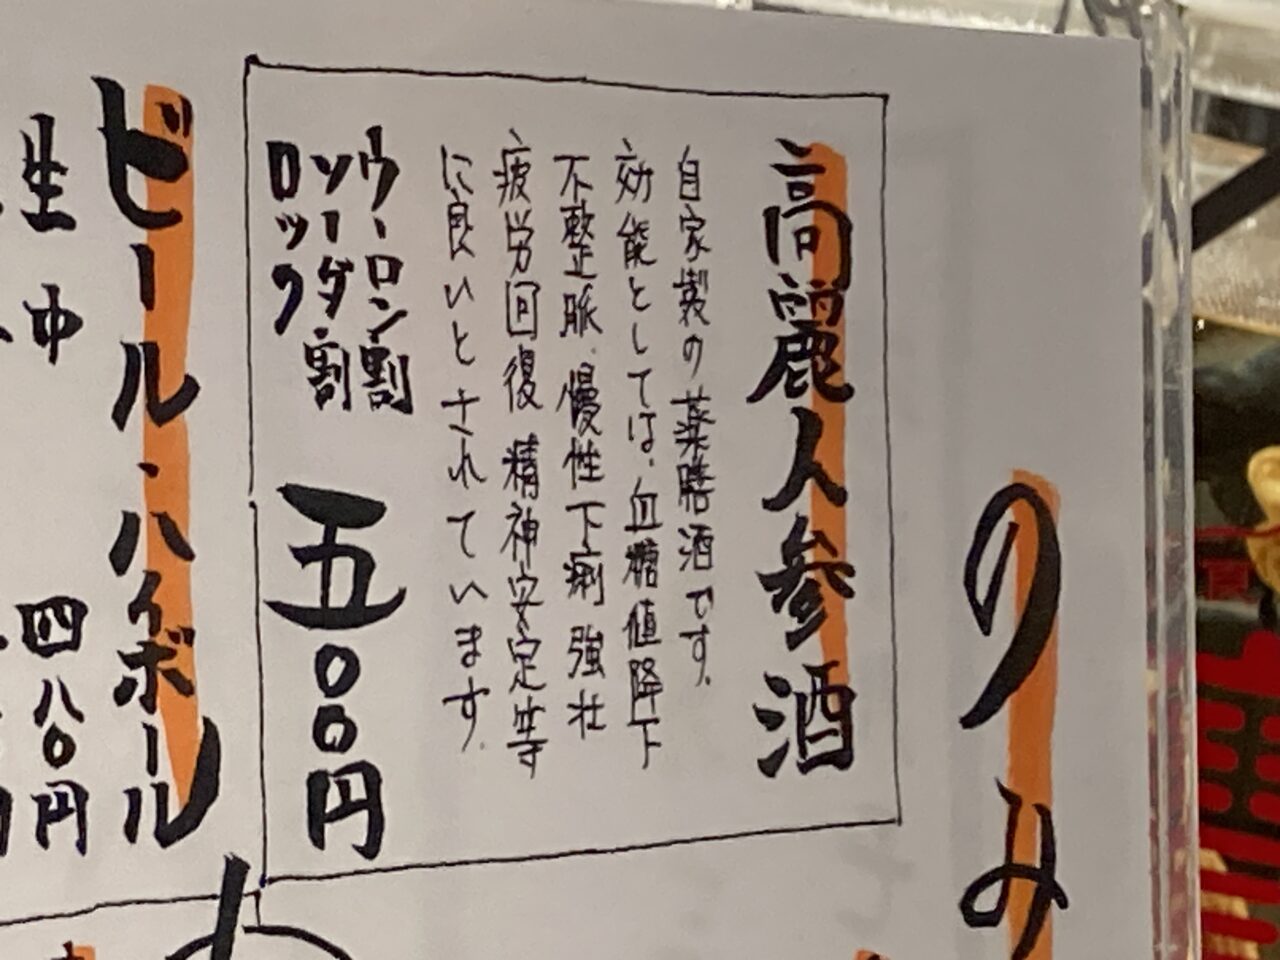 のみ
高麗人参酒
自家製の薬膳酒です。
効能としては、血糖値降下
不整脈、慢性下痢 強壮
疲労回復 精神安定等
に良いとされています。
ウーロン割
ソーダ割
ロック
五〇〇円
ビール・ハイボール
生中 四八〇円